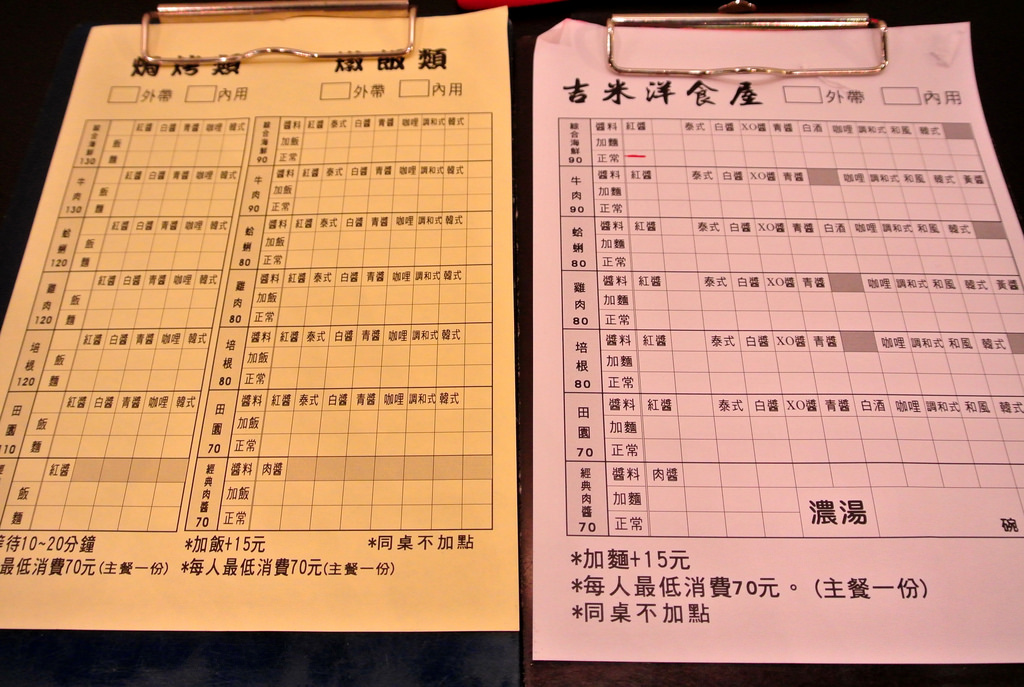 焗烤類
□外帶 □內用
綜合海鮮 130 飯 麵 紅醬 白醬 青醬 咖哩 韓式
牛肉 130 飯 麵 紅醬 白醬 青醬 咖哩 韓式
蛤蜊 120 飯 麵 紅醬 白醬 青醬 咖哩 韓式
雞肉 120 飯 麵 紅醬 白醬 青醬 咖哩 韓式
培根 120 飯 麵 紅醬 白醬 青醬 咖哩 韓式
田園 110 飯 麵 紅醬 白醬 青醬 咖哩 韓式
飯 麵 紅醬
待10~20分鐘
最低消費70元(主餐一份)
燉飯類
□外帶 □內用
綜合海鮮 90 醬料 紅醬 泰式 白醬 青醬 咖哩 調和式 韓式
加飯
正常
牛肉 90 醬料 紅醬 泰式 白醬 青醬 咖哩 調和式 韓式
加飯
正常
蛤蜊 80 醬料 紅醬 泰式 白醬 青醬 咖哩 調和式 韓式
加飯
正常
雞肉 80 醬料 紅醬 泰式 白醬 青醬 咖哩 調和式 韓式
加飯
正常
培根 80 醬料 紅醬 泰式 白醬 青醬 咖哩 調和式 韓式
加飯
正常
田園 70 醬料 紅醬 泰式 白醬 青醬 咖哩 調和式 韓式
加飯
正常
經典肉醬 70 醬料 肉醬
加飯
正常
*加飯+15元 *同桌不加點
*每人最低消費70元(主餐一份)
吉米洋食屋 □外帶 □內用
綜合海鮮 90 醬料 紅醬 泰式 白醬 XO醬 青醬 白酒 咖哩 調和式 和風 韓式
加麵
正常
牛肉 90 醬料 紅醬 泰式 白醬 XO醬 青醬 咖哩 調和式 和風 韓式 黃醬
加麵
正常
蛤蜊 80 醬料 紅醬 泰式 白醬 XO醬 青醬 白酒 咖哩 調和式 和風 韓式
加麵
正常
雞肉 80 醬料 紅醬 泰式 白醬 XO醬 青醬 咖哩 調和式 和風 韓式 黃醬
加麵
正常
培根 80 醬料 紅醬 泰式 白醬 XO醬 青醬 咖哩 調和式 和風 韓式
加麵
正常
田園 70 醬料 紅醬 泰式 白醬 XO醬 青醬 白酒 咖哩 調和式 和風 韓式
加麵
正常
經典肉醬 70 醬料 肉醬
加麵
正常
濃湯 碗
*加麵+15元
*每人最低消費70元。(主餐一份)
*同桌不加點